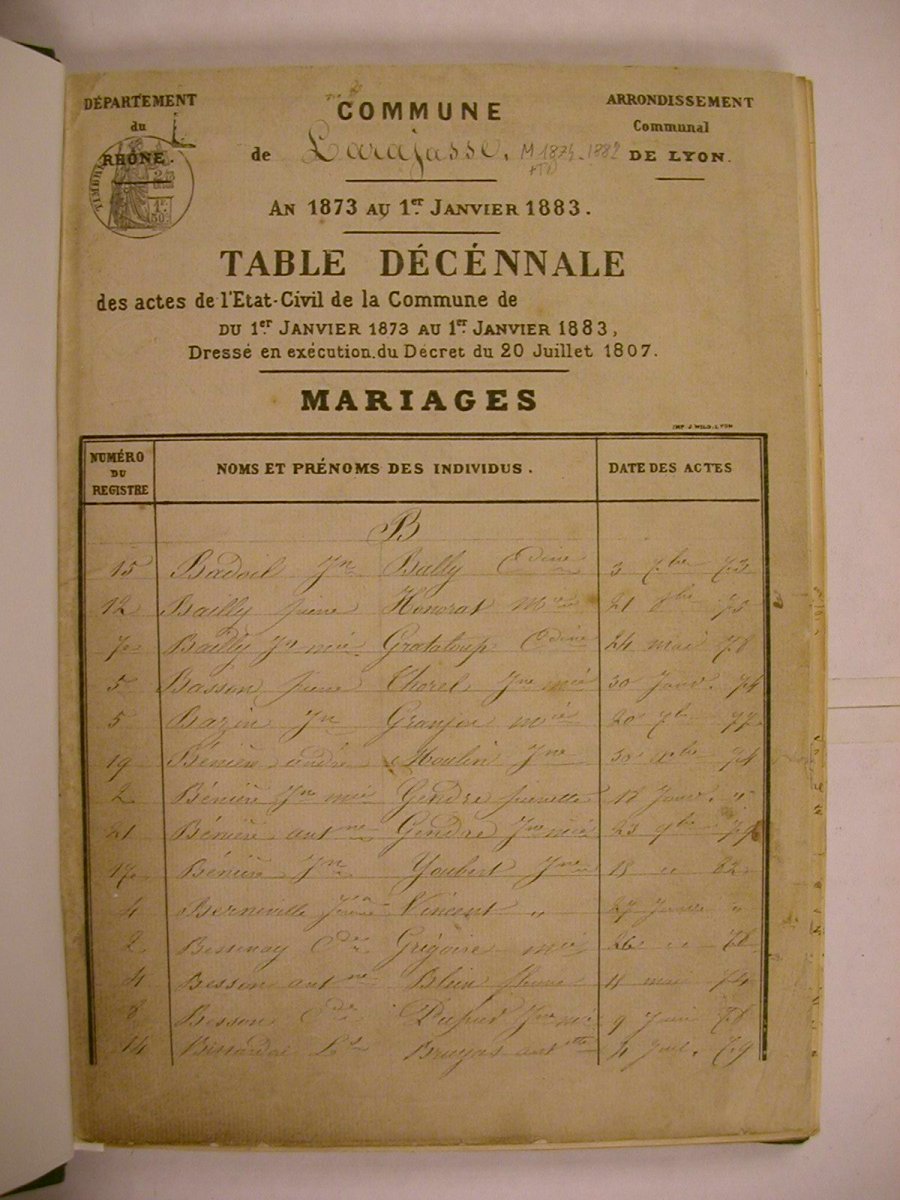 DÉPARTEMENT
du
RHÔNE.
TIMBRE
COMMUNE
de Larajasse. M 1873-1882
ARRONDISSEMENT
Communal
DE LYON.
AN 1873 AU 1er JANVIER 1883.
TABLE DÉCÉNNALE
des actes de l'Etat-Civil de la Commune de
DU 1er JANVIER 1873 AU 1er JANVIER 1883,
Dressé en exécution du Décret du 20 Juillet 1807.
MARIAGES
IMP J. WILD. LYON
NUMÉRO DU REGISTRE
NOMS ET PRÉNOMS DES INDIVIDUS.
DATE DES ACTES
B
15 Badoil Jn Bally Cdine 3 7bre 73
12 Bailly pierre Honorat Mie 21 8bre 75
7 Bailly Jn mie Grataloup Cdine 24 mai 78
5 Basson pierre Chorel Jne mie 30 Janv. 74
5 Bazin Jn Granjon mie 20 7b 77
19 Bénière andré Moulin Jne 30 74
2 Bénière Jn mie Gendre pierrette 18 Janv. "
21 Bénière antne Gendre Jne mie 23 9bre 79
17 Bénière Jn Joubert Jne 18 " 82
4 Berneville Vincent " 27 "
2 Bessenay Cde Grégoire mie 26 " 78
4 Besson antne Blein 11 mai 74
8 Besson Cde Dupuy Jne mie 9 Juin 78
14 Ls Bruyas antette 4 Juil. 79